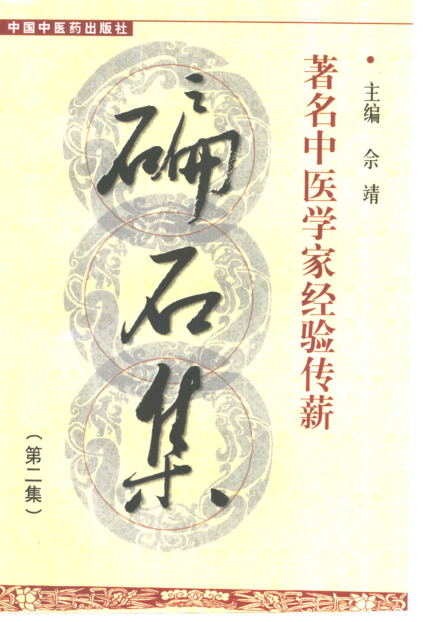 中国中医药出版社
• 主编 佘靖
著名中医学家经验传薪
碥石集
(第二集)